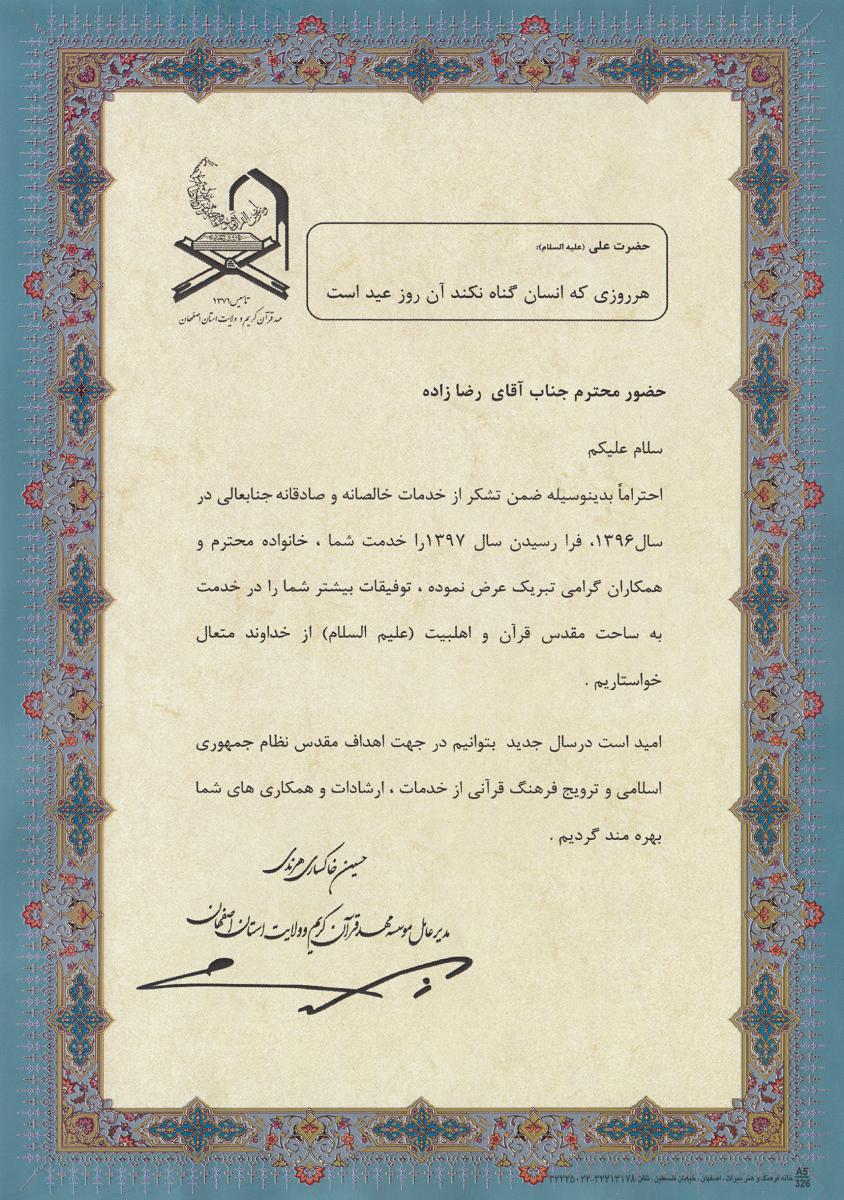 تاسیس ۱۳۷۱
مهد قرآن کریم و ولایت استان اصفهان
حضرت علی (علیه السلام):
هرروزی که انسان گناه نکند آن روز عید است
حضور محترم جناب آقای رضا زاده
سلام علیکم
احتراماً بدینوسیله ضمن تشکر از خدمات خالصانه و صادقانه جنابعالی در
سال۱۳۹۶، فرا رسیدن سال ۱۳۹۷را خدمت شما ، خانواده محترم و
همکاران گرامی تبریک عرض نموده ، توفیقات بیشتر شما را در خدمت
به ساحت مقدس قرآن و اهلبیت (علیم السلام) از خداوند متعال
خواستاریم .
امید است درسال جدید بتوانیم در جهت اهداف مقدس نظام جمهوری
اسلامی و ترویج فرهنگ قرآنی از خدمات ، ارشادات و همکاری های شما
بهره مند گردیم .
حسین خاکساری هرندی
مدیر عامل موسسه مهد قرآن کریم و ولایت استان اصفهان
A5
326
خانه فرهنگ و هنر میراث ، اصفهان ، خیابان فلسطین ، تلفن ۳۲۲۱۳۱۷۸-۳۲۲۲۵۰۲۲